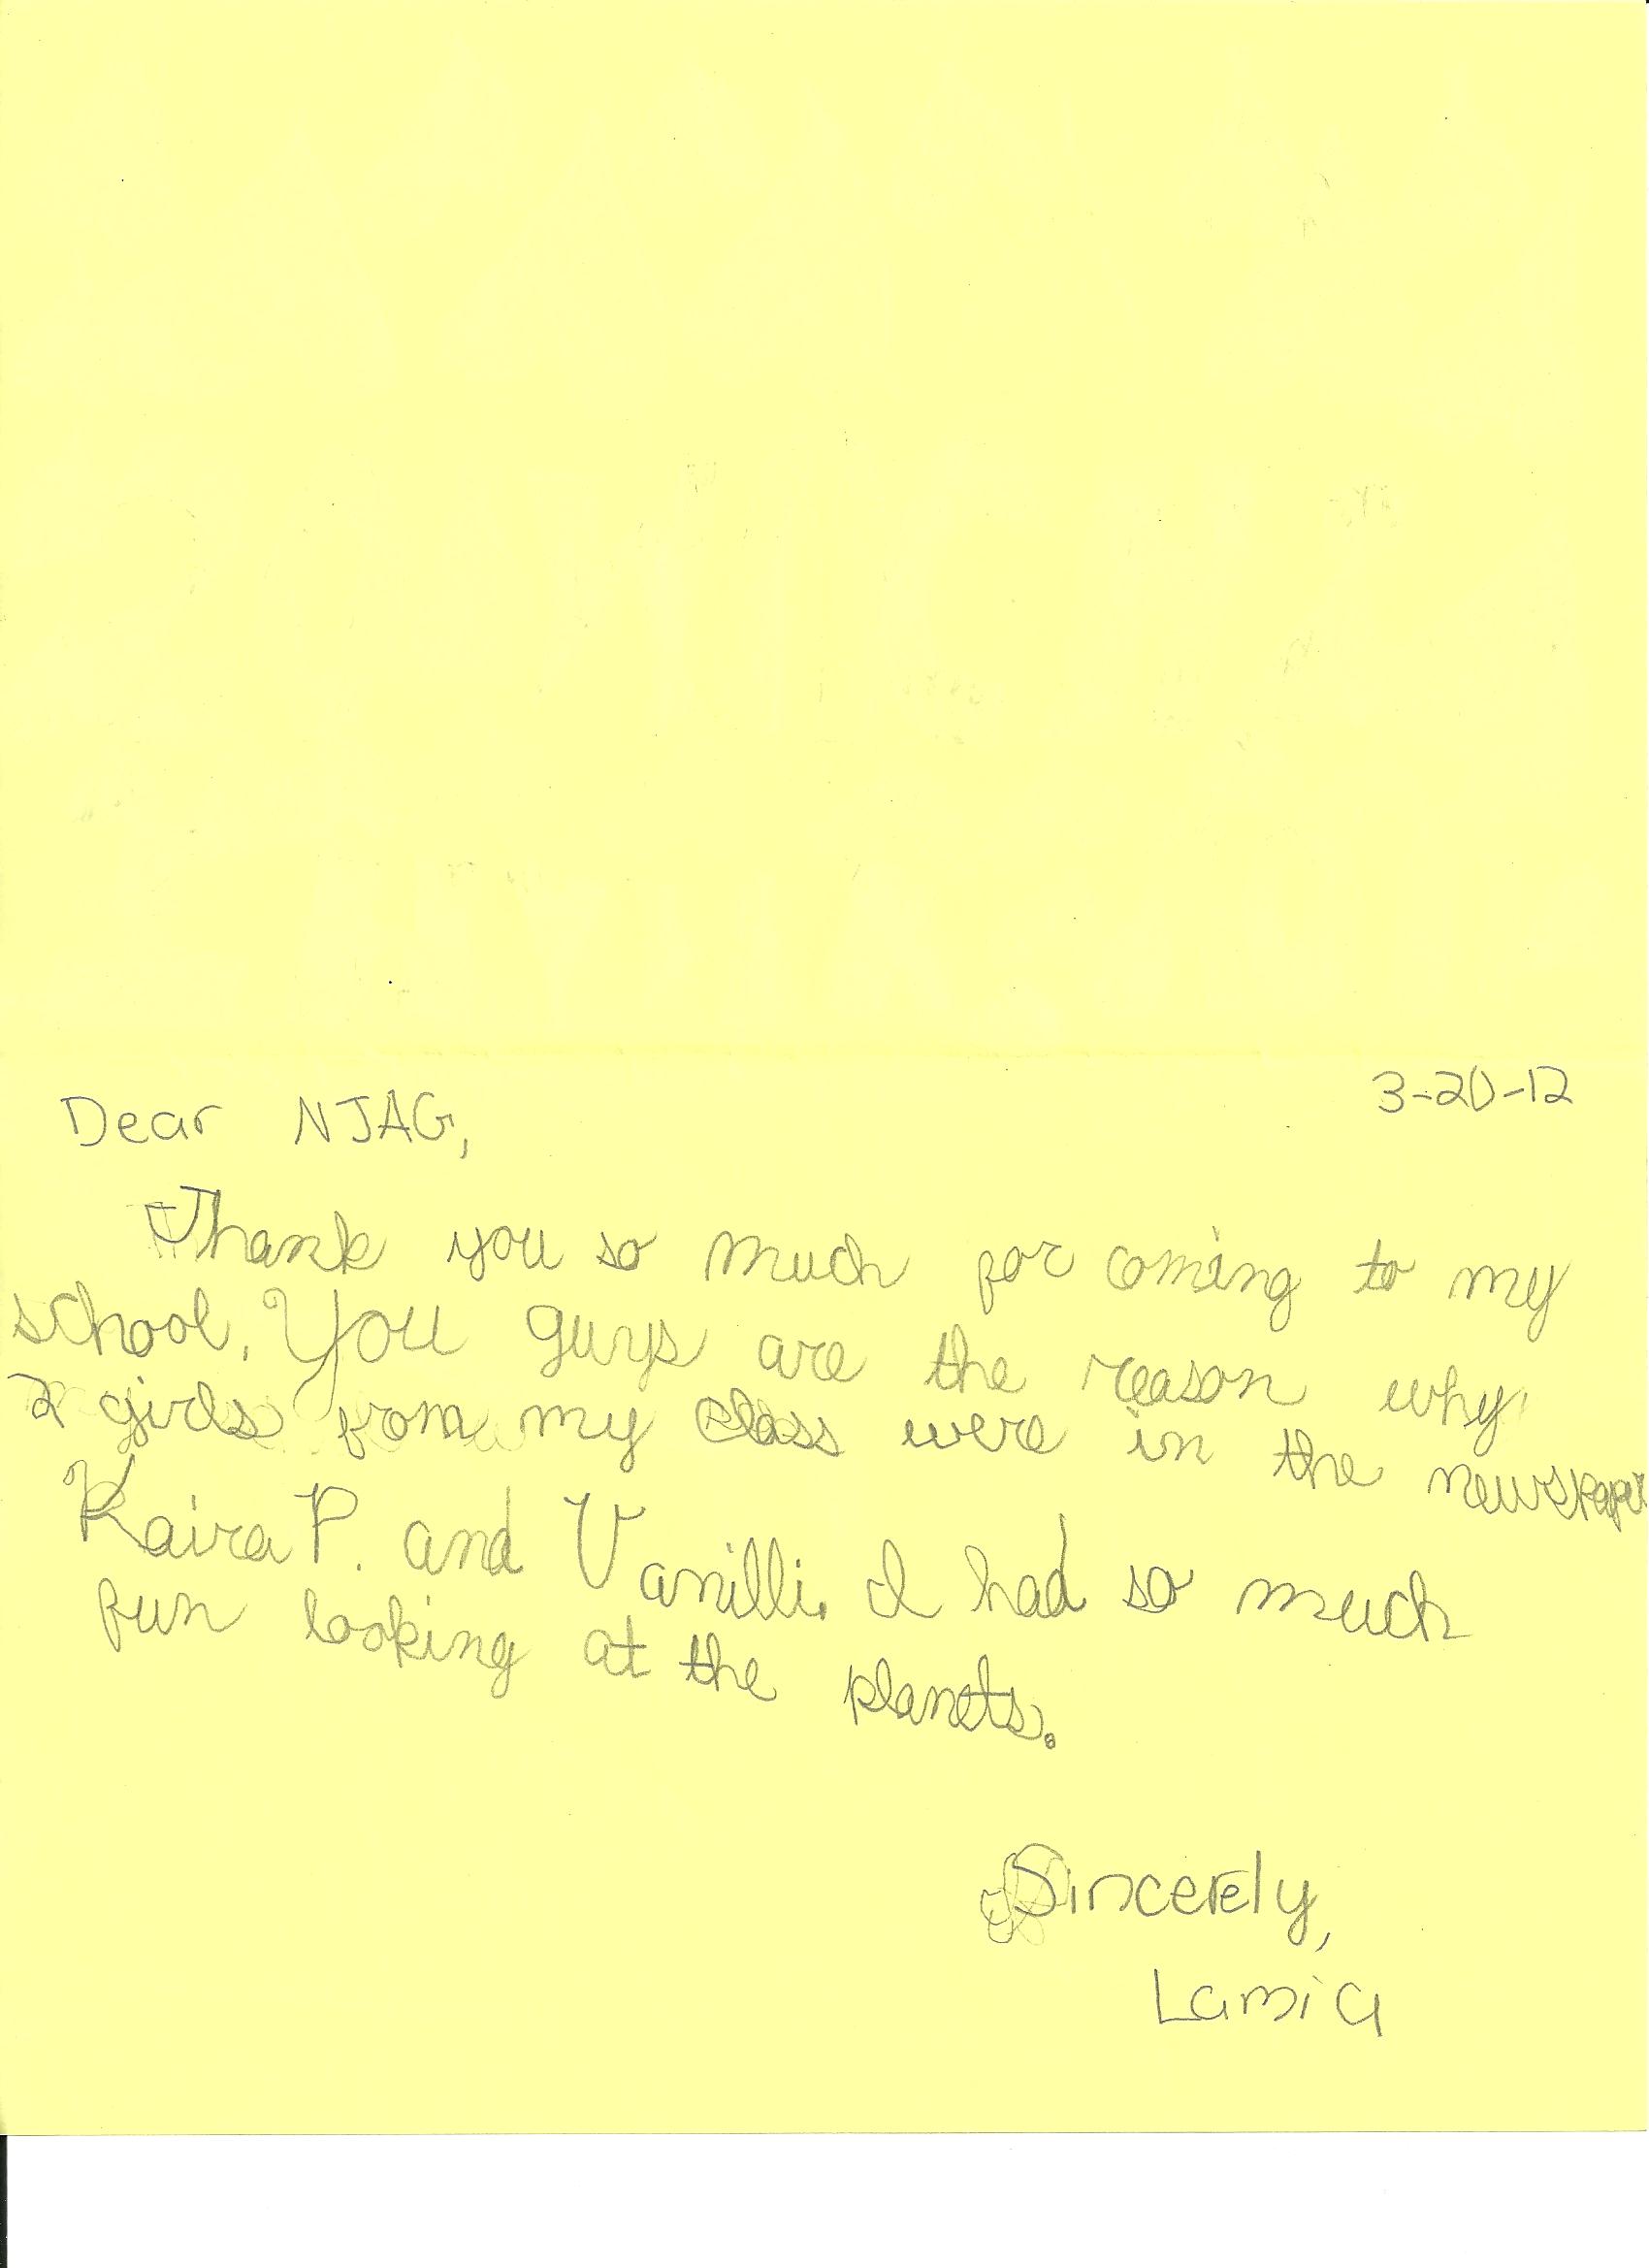 3-20-12
Dear NJAG,
Thank you so much for coming to my
school. You guys are the reason why
2 girls from my class were in the newspaper
Kaira P. and Vanilli. I had so much
fun looking at the planets.
Sincerely,
Lamia